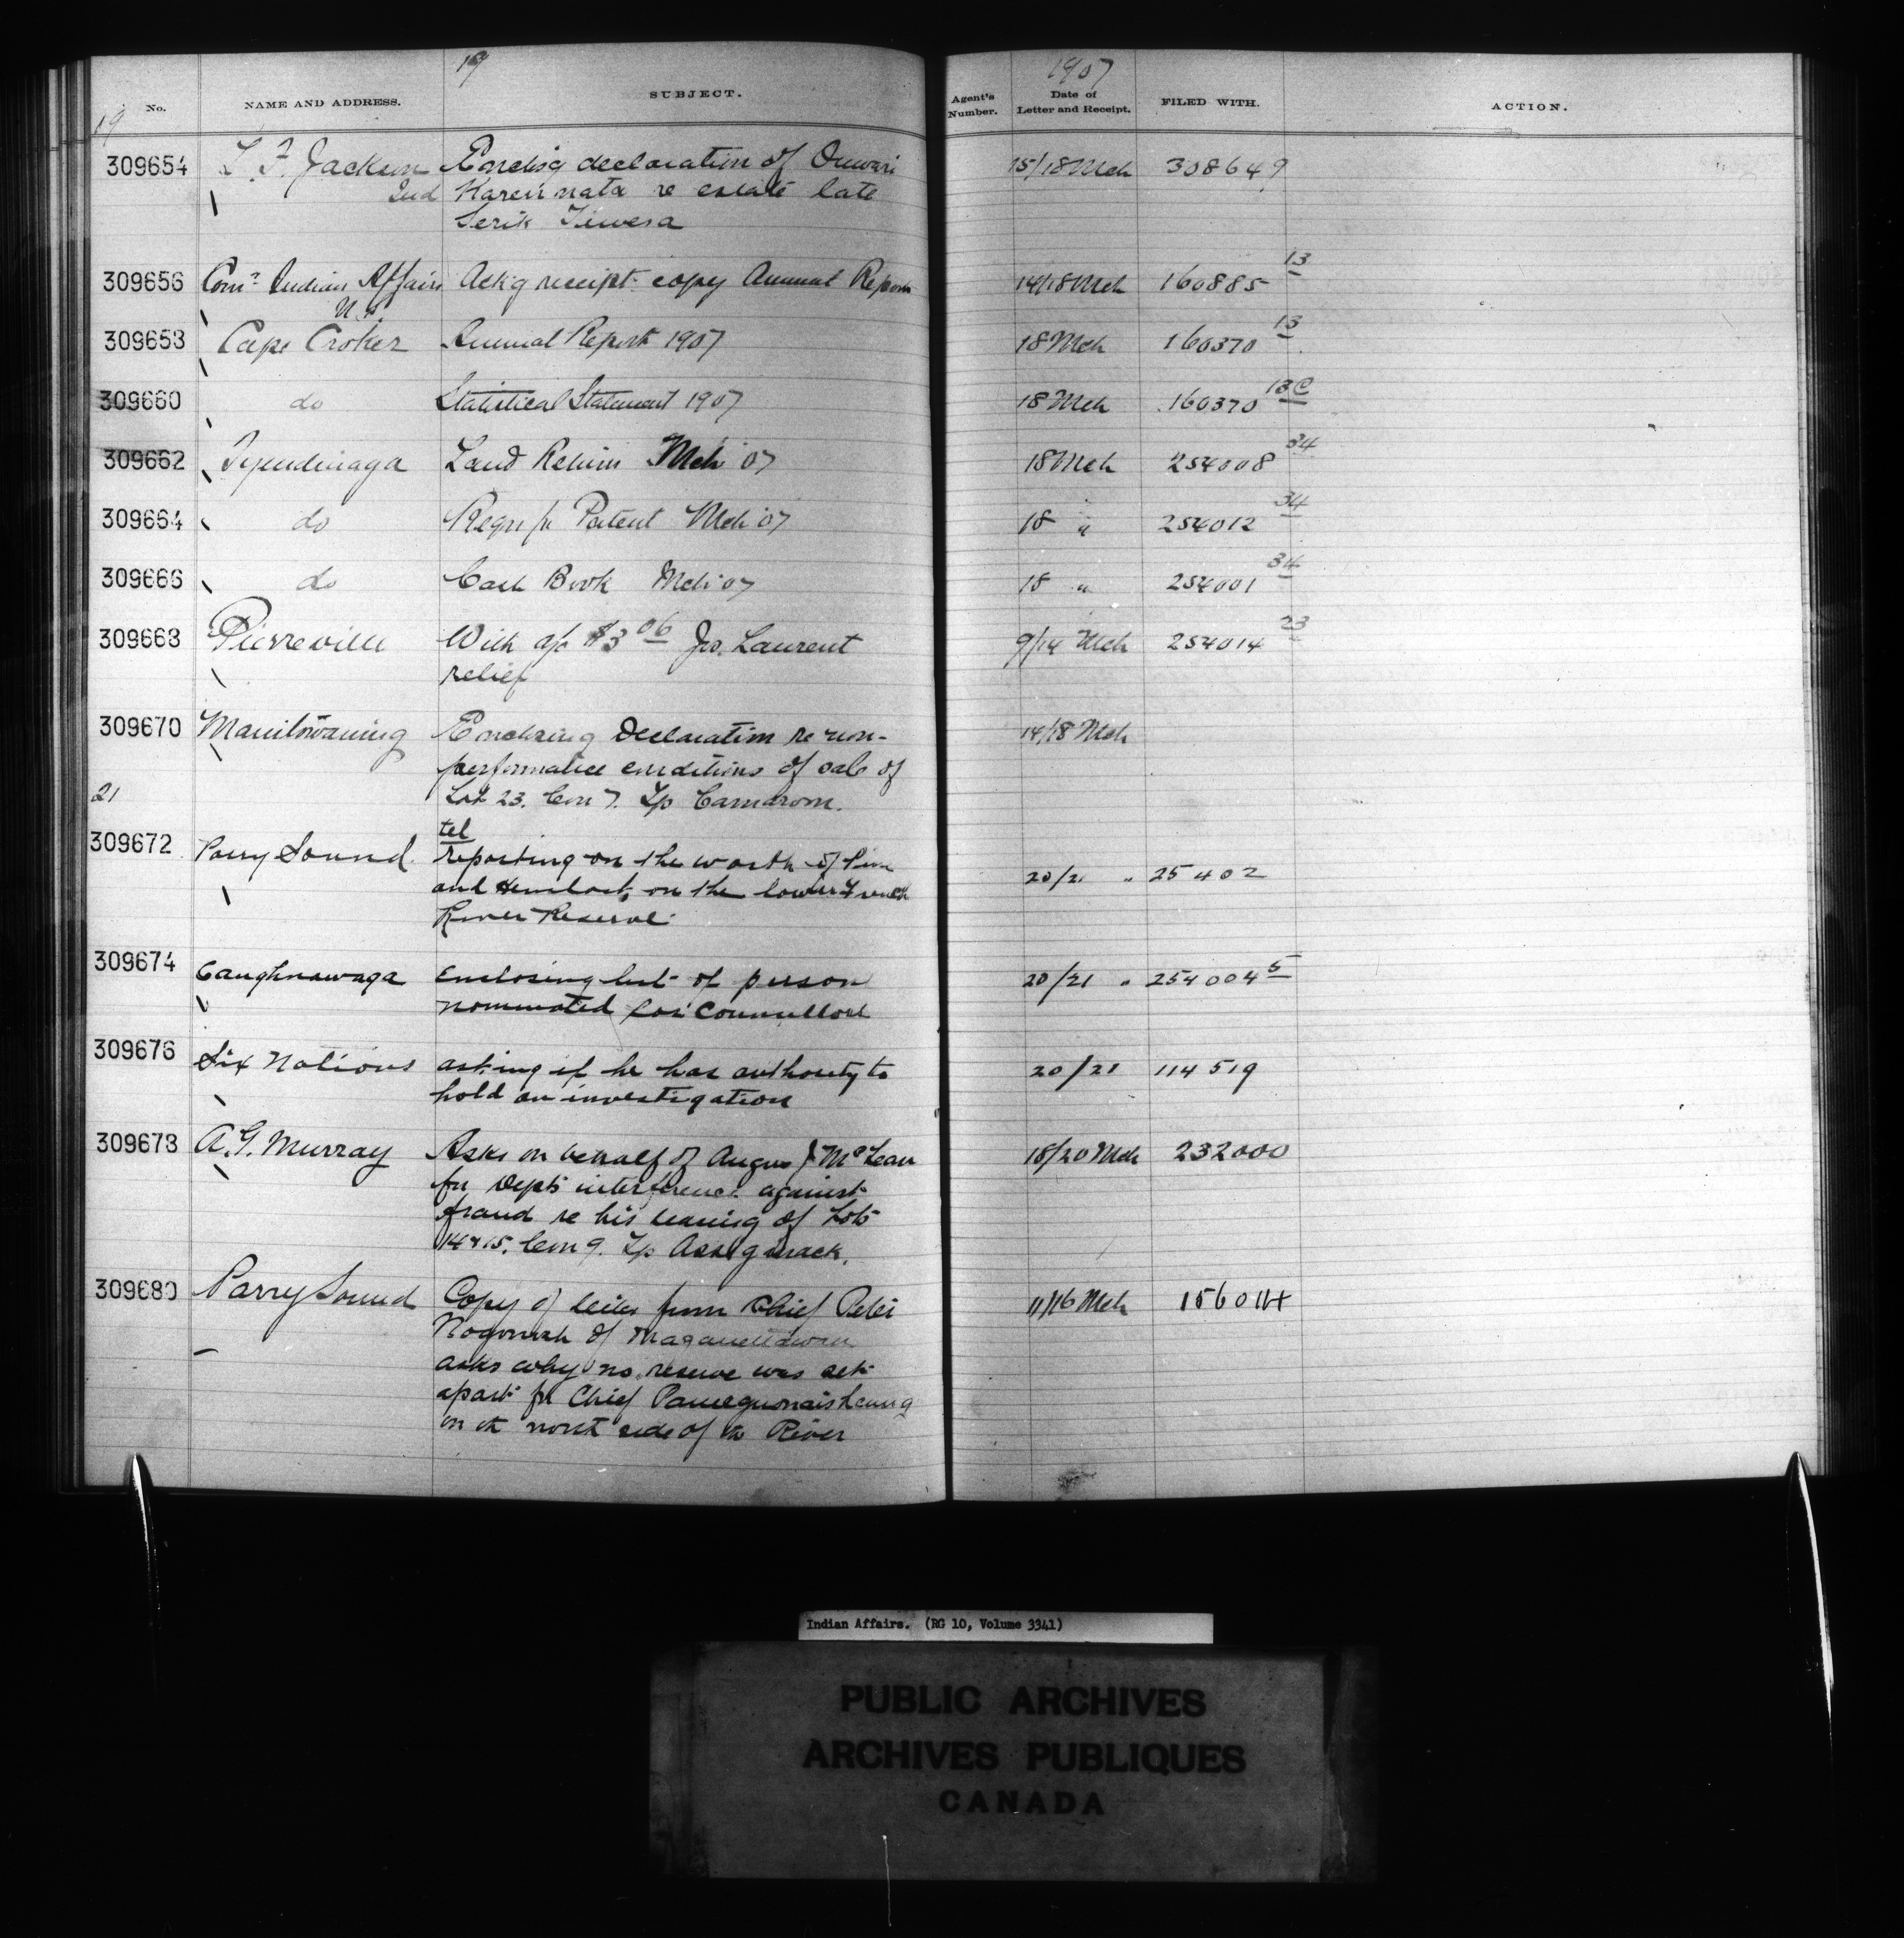 19 1907
No. NAME AND ADDRESS. SUBJECT. Agent's Number. Date of Letter and Receipt. FILED WITH. ACTION.
19
309654 T. F. Jackson Enclos'g declaration of Onwari 15/18 Mch 308649
2nd Karennata re estate late
Serik Tewesa
309656 Comr Indian Affairs Ack'g receipt copy Annual Report 14/18 Mch 160885 13
309658 Cape Croker Annual Report 1907 18 Mch 160370 13
309660 do Statistical Statement 1907 18 Mch 160370 13C
309662 Tyendinaga Land Return Mch 07 18 Mch 254008 34
309664 do Retn fr Patent Mch 07 18 " 254012 34
309666 do Cash Book Mch 07 18 " 254001 34
309668 Pierreville With a/c $3 06 Jos. Laurent 9/14 Mch 254014 23
relief
309670 Manitowaning Enclosing Declaration re non- 14/18 Mch
performance conditions of sale of
21 Lot 23. Con 7. Tp Carnarvon.
tel
309672 Parry Sound reporting on the worth of Pine 20/21 " 25402
and Hemlock on the lower French
River Reserve
309674 Caughnawaga Enclosing list of person 20/21 " 254004 5
nominated for Councillors
309676 Six Nations asking if he has authority to 20/21 114519
hold an investigation
309678 A. G. Murray Asks on behalf of Angus J McLean 18/20 Mch 232000
for Dept's interference against
fraud re his leasing of Lots
14 & 15. Con 9. Tp Assiginack.
309680 Parry Sound Copy of letter from Chief Peter 11/16 Mch 156014
of Maganettawan
asks why no reserve was set
apart for Chief
on th north side of th River
Indian Affairs. (RG 10, Volume 3341)
PUBLIC ARCHIVES
ARCHIVES PUBLIQUES
CANADA